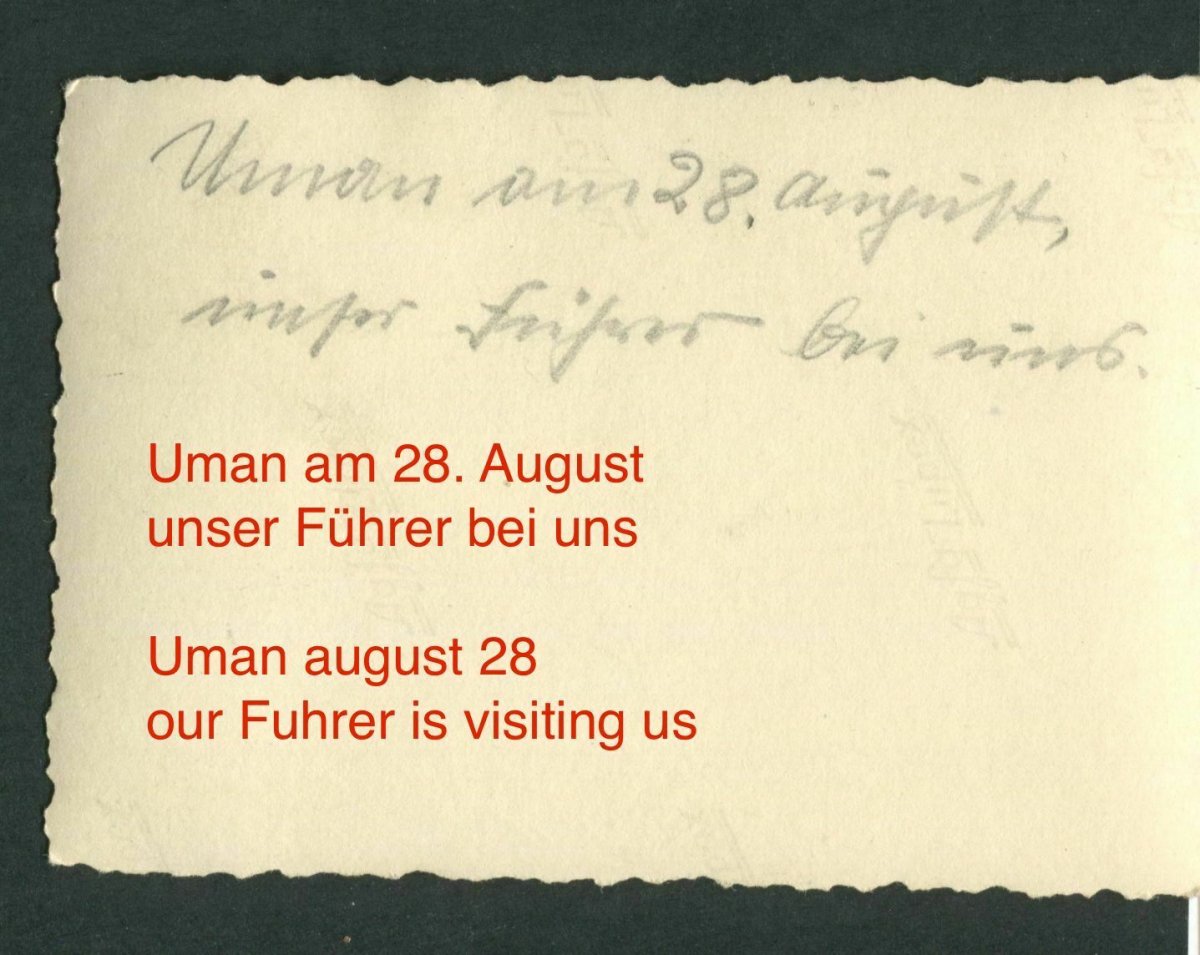 Uman am 28. August,
unser Führer bei uns.
Uman am 28. August
unser Führer bei uns
Uman august 28
our Fuhrer is visiting us